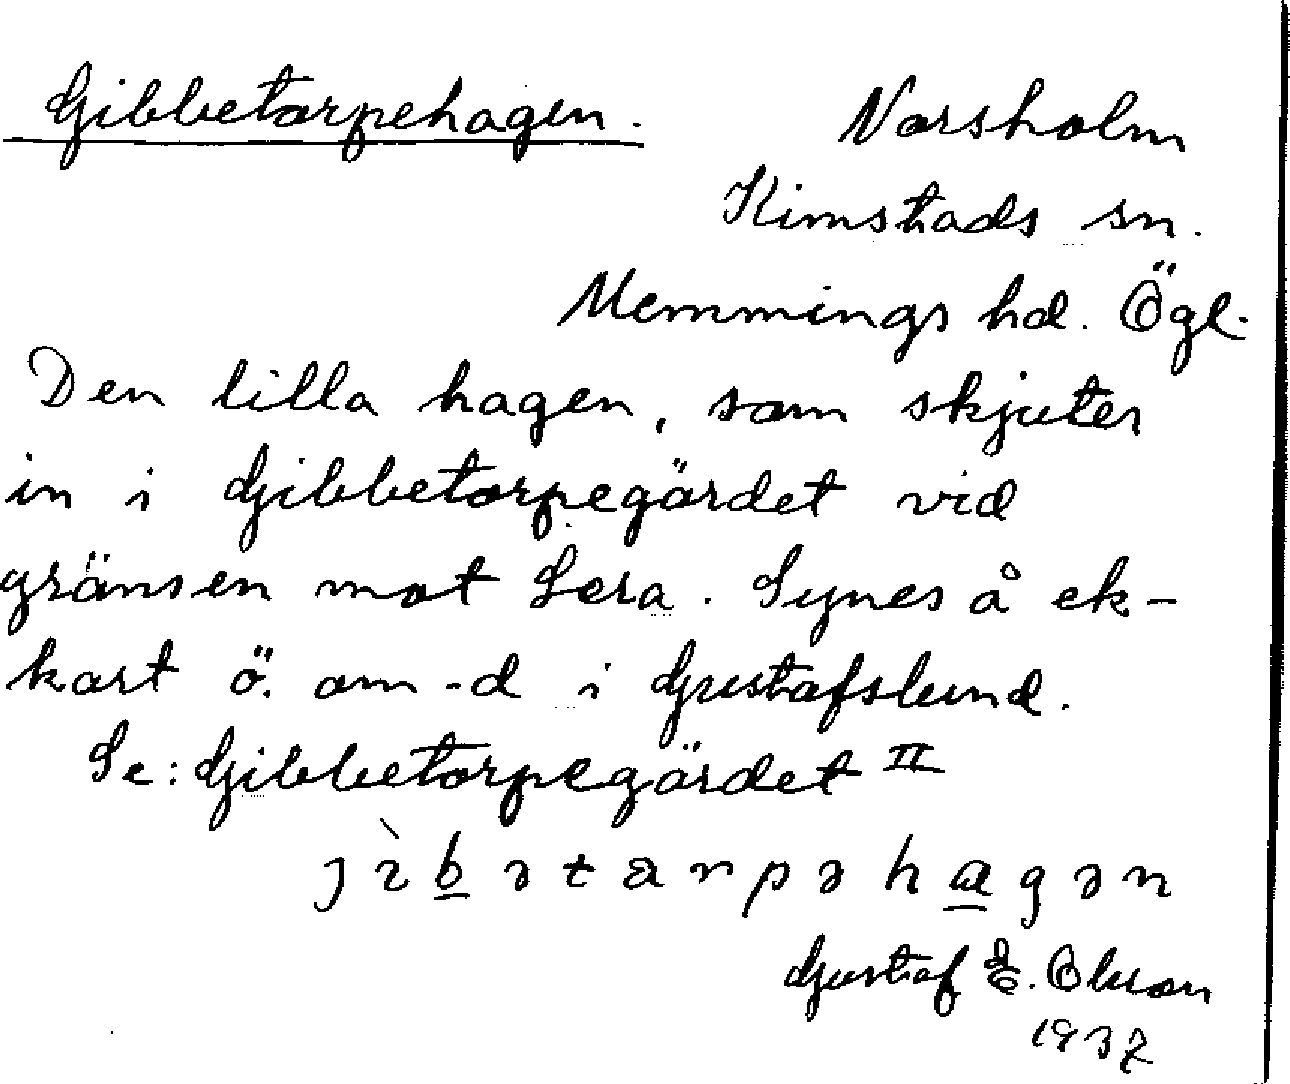 Gibbetorpehagen.
Norsholm
Kimstads sn.
Memmings hd. Ögl.
Den lilla hagen, som skjuter
in i Gibbetorpegärdet vid
gränsen mot Sera. Synes å ek-
kart ö. om -d i Gustafslund.
Se: Gibbetorpegärdet II
jìb̲ətarpəha̲gən
Gustaf E. Olsson
1937